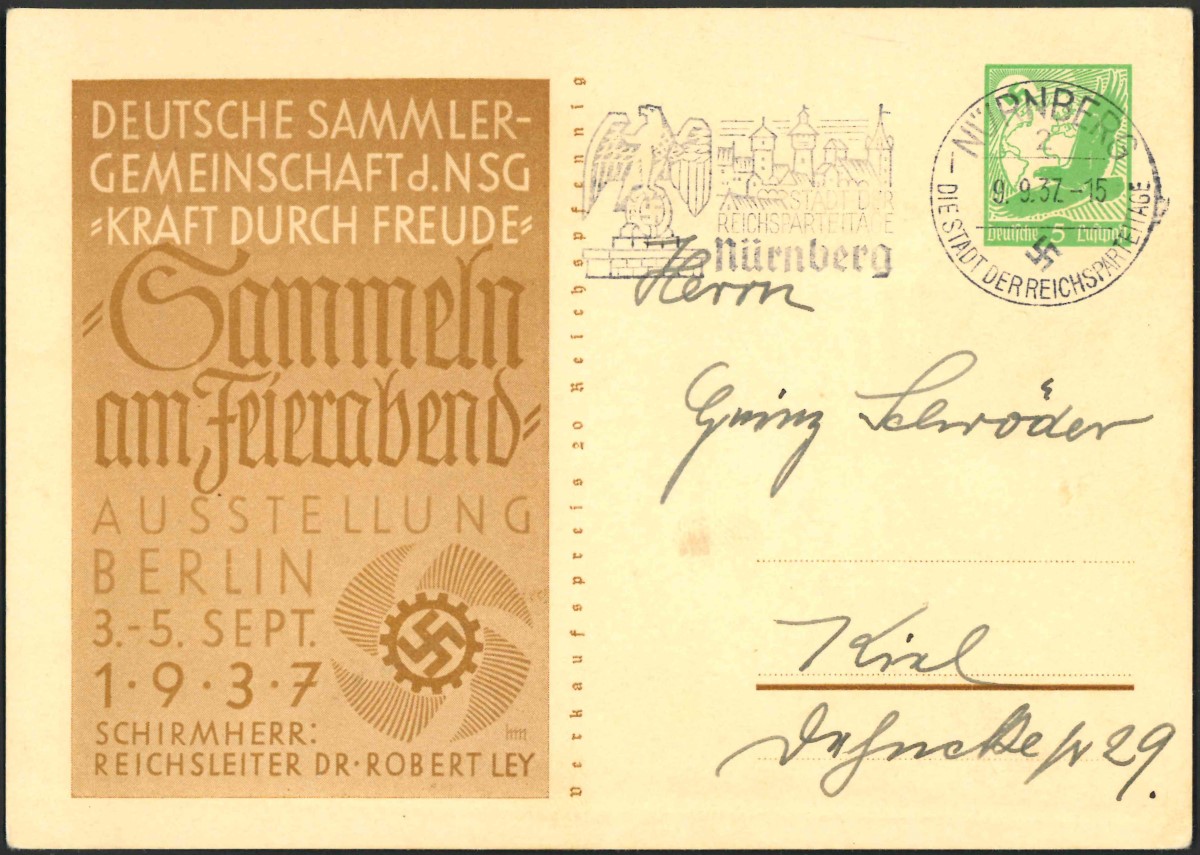 DEUTSCHE SAMMLER-
GEMEINSCHAFT d. NSG
"KRAFT DURCH FREUDE"
"Sammeln
am Feierabend"
AUSSTELLUNG
BERLIN
3.-5. SEPT.
1·9·3·7
SCHIRMHERR:
REICHSLEITER DR·ROBERT LEY
hm
Verkaufspreis 20 Reichspfennig
STADT DER
REICHSPARTEITAGE
Nürnberg
NÜRNBERG
2
9.9.37.-15
DIE STADT DER REICHSPARTEITAGE
Deutsche 5 Luftpost
Herrn
Schröder
Kiel
29.